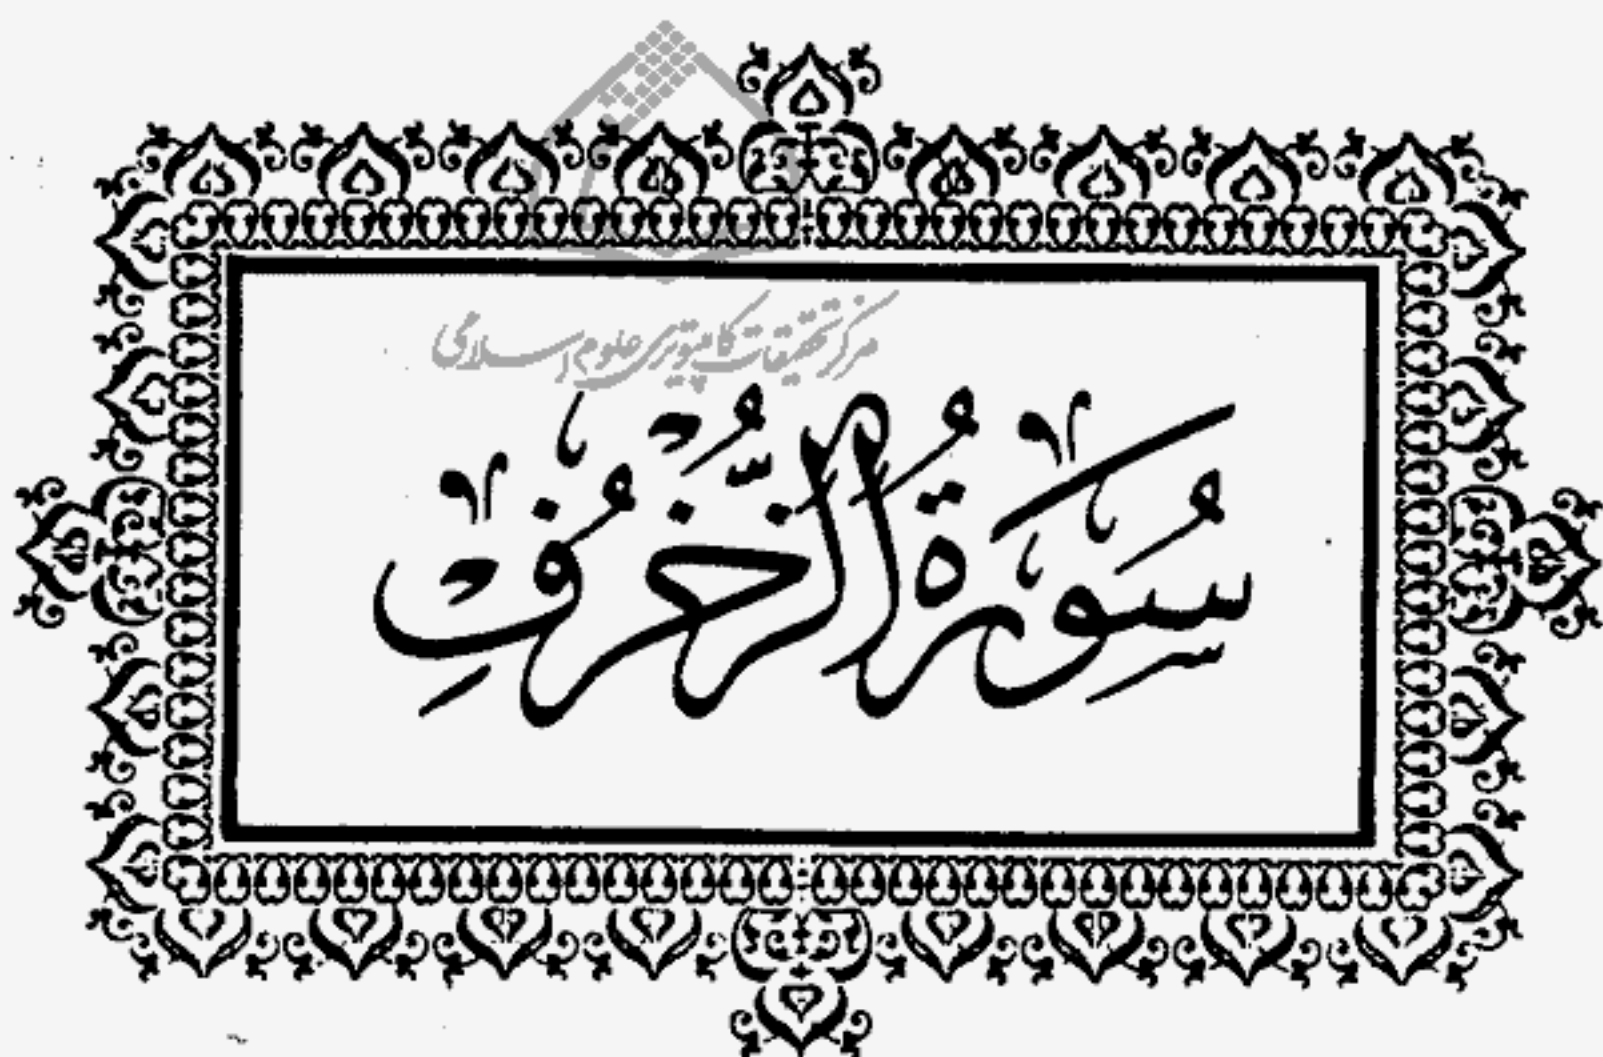 مرکز تحقیقات کامپیوتری علوم اسلامی
سُورَةُ الزُّخْرُفِ